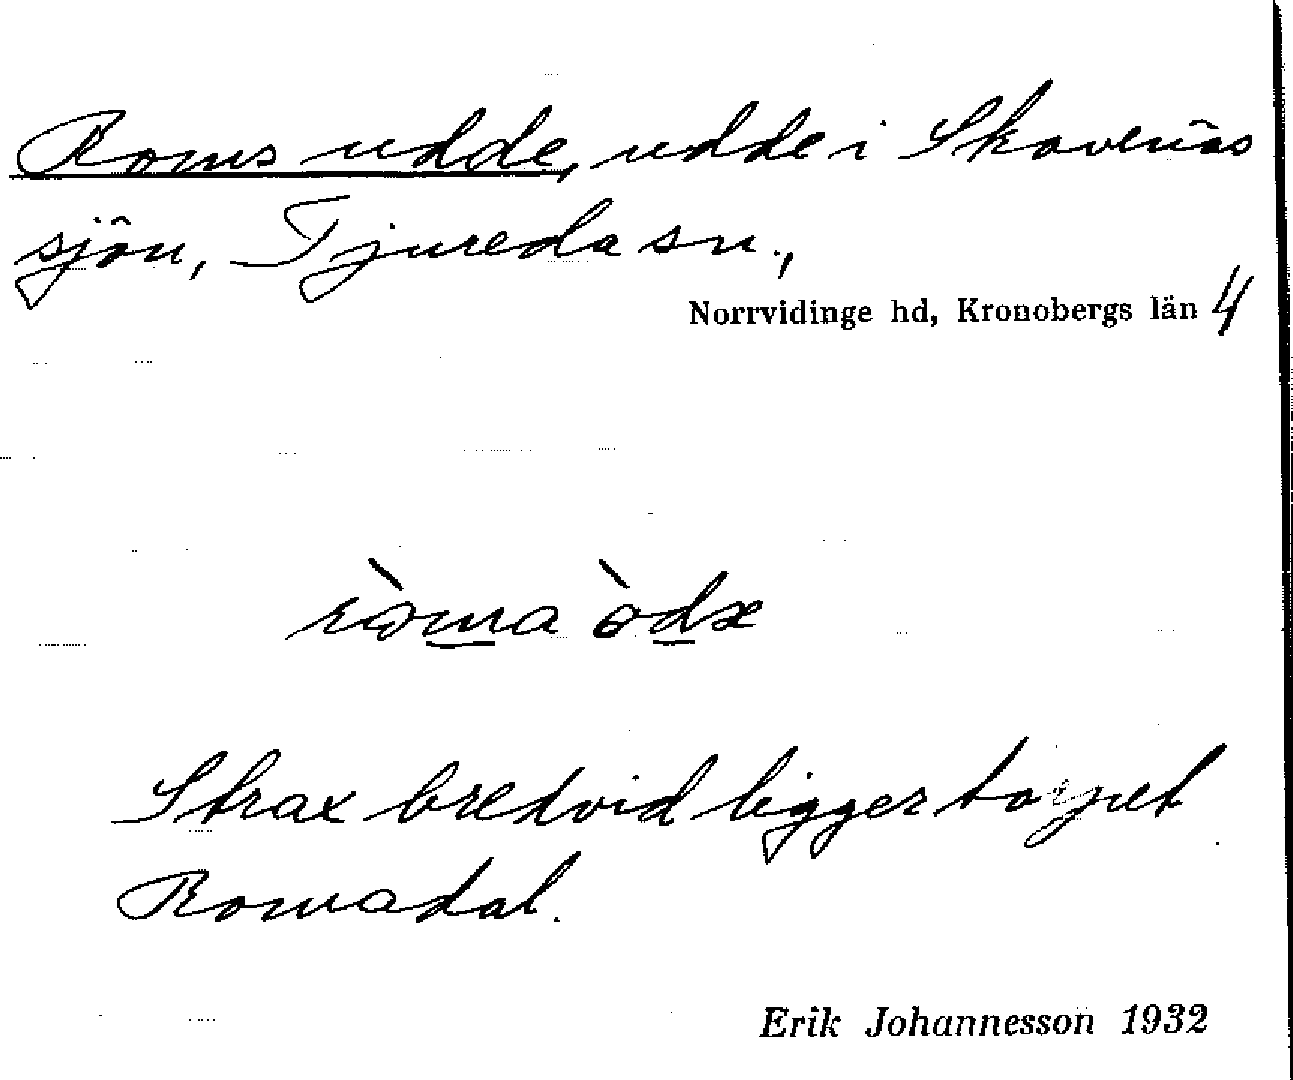 Roms udde, udde i Skavenäs
sjön, Tjureda sn.,
Norrvidinge hd, Kronobergs län 4
ròma òdæ
Strax bredvid ligger torpet
Romadal.
Erik Johannesson 1932